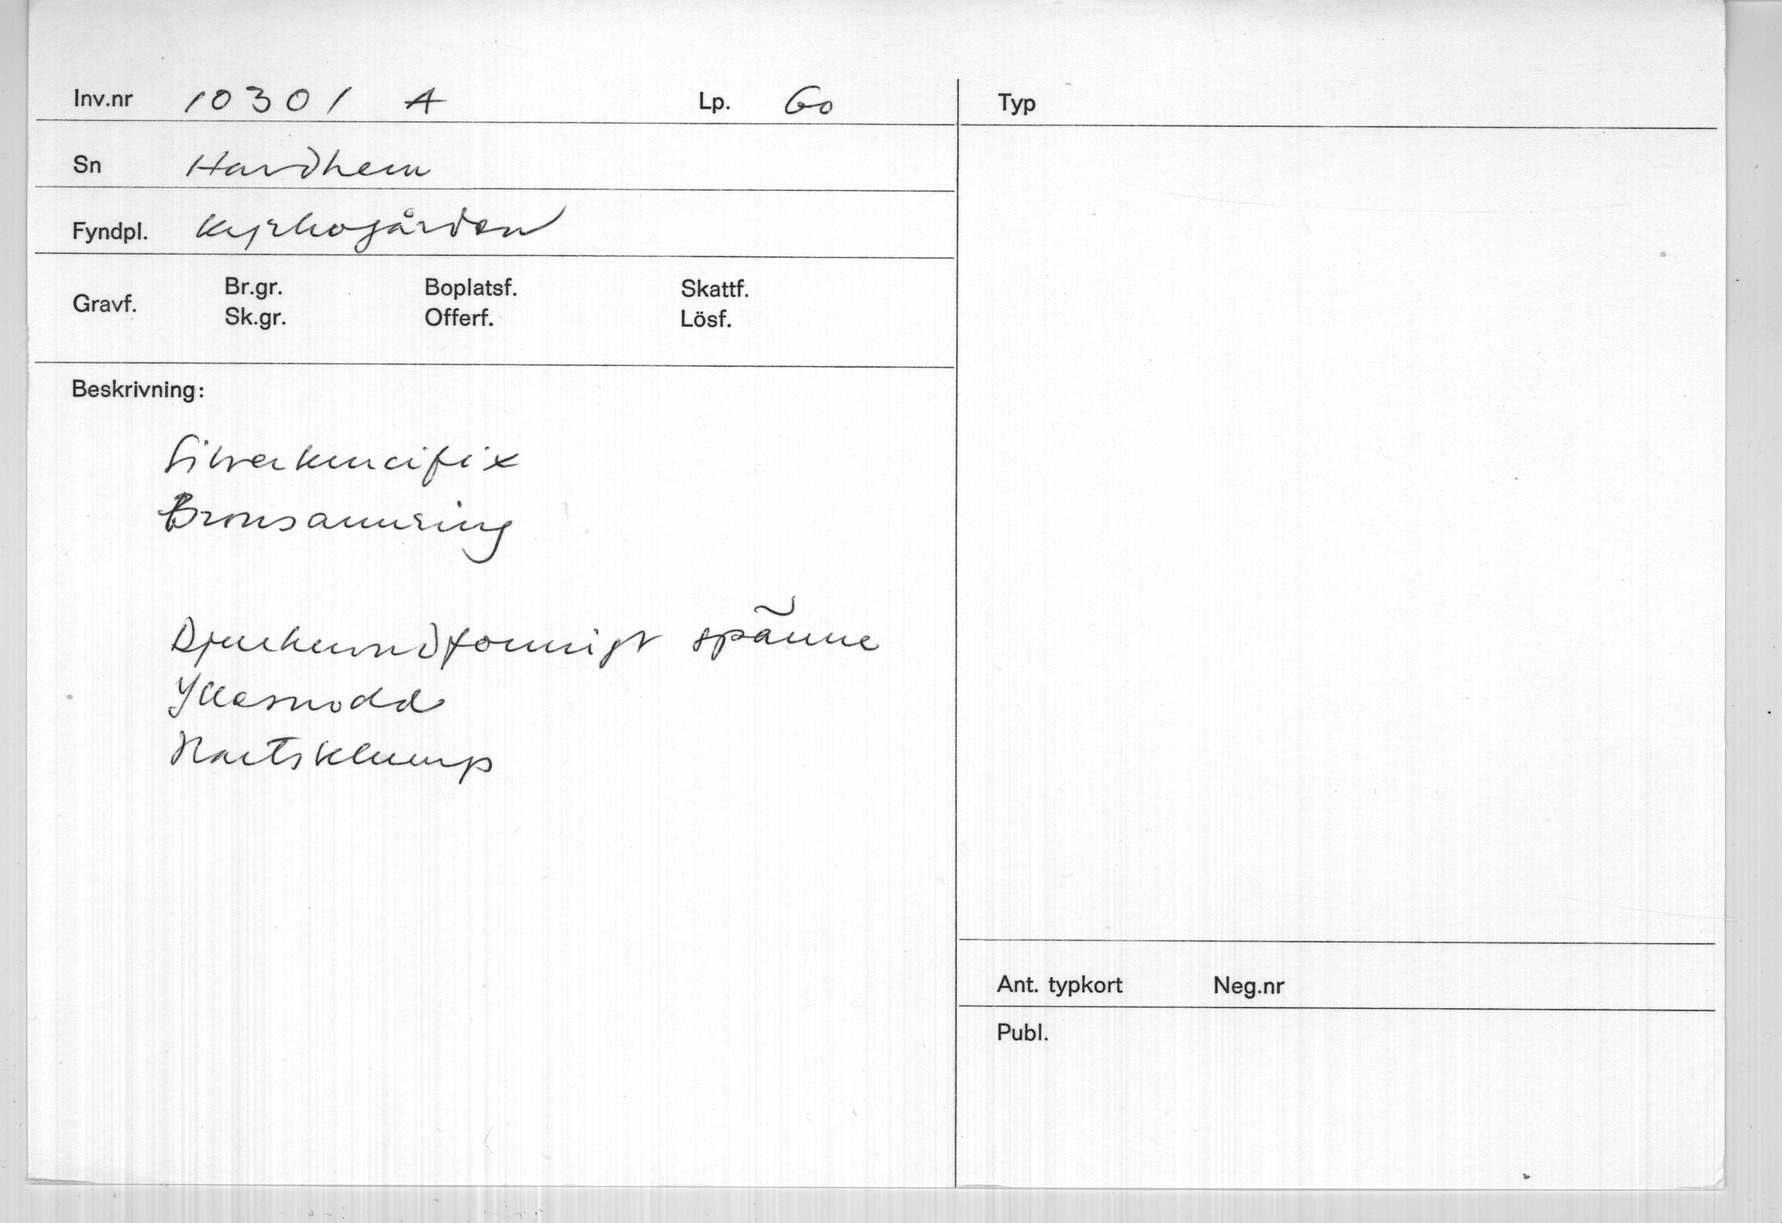 Inv.nr 10301 A Lp. Go
Sn Havdhem
Fyndpl. Kyrkogården
Gravf. Br.gr. Boplatsf. Skattf.
Sk.gr. Offerf. Lösf.
Beskrivning:
Silverkrucifix
Bronsarmring
Djurhuvudformigt spänne
Yllesnodd
Hartsklump
Typ
Ant. typkort Neg.nr
Publ.